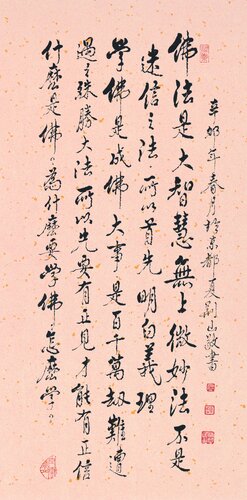 辛卯年春月於京都夏荆山敬書
佛法是大智慧無上微妙法不是
迷信之法所以首先明白義理
學佛是成佛大事是百千萬劫難遭
遇之殊勝大法所以先要有正見才能有正信
什麼是佛為什麼要學佛怎麼學